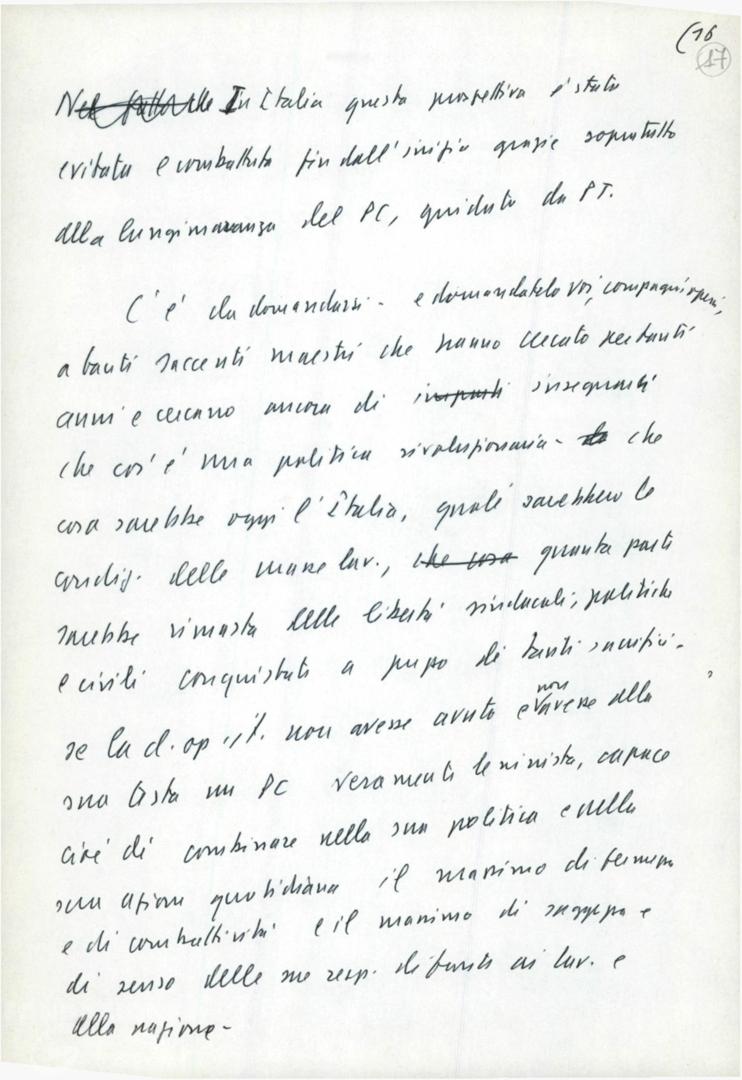 (16
17
Nel futuro In Italia questa prospettiva è stata
evitata e combattuta fin dall'inizio grazie sopratutto
alla lungimiranza del PC, guidato da PT.
C'è da domandarsi - e domandatelo voi, compagni operai,
a tanti saccenti maestri che hanno cercato per tanti
anni e cercano ancora di insegnarci
che cos'è una politica rivoluzionaria - che
cosa sarebbe oggi l'Italia, quali sarebbero le
condiz. delle masse lav., che cosa quanta parte
sarebbe rimasta delle libertà sindacali, politiche
e civili conquistate a prezzo di tanti sacrifici -
se la cl. op. it. non avesse avuto e non avesse alla
sua testa un PC veramente leninista, capace
cioè di combinare nella sua politica e nella
sua azione quotidiana il massimo di fermezza
e di combattività e il massimo di saggezza e
di senso delle sue resp. di fronte ai lav. e
alla nazione -